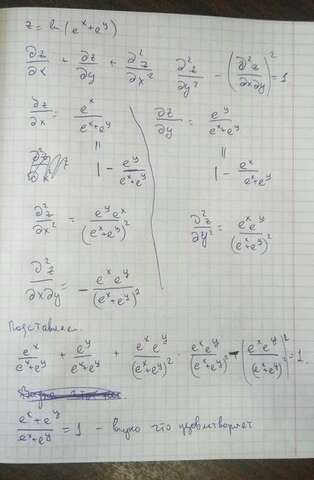 z = ln(e^x + e^y)
∂z/∂x + ∂z/∂y + ∂²z/∂x² · ∂²z/∂y² − (∂²z/∂x∂y)² = 1
∂z/∂x = e^x/(e^x+e^y) = 1 − e^y/(e^x+e^y)
∂z/∂y = e^y/(e^x+e^y) = 1 − e^x/(e^x+e^y)
∂²z/∂x² = e^y e^x/(e^x+e^y)²
∂²z/∂y² = e^x e^y/(e^x+e^y)²
∂²z/∂x∂y = − e^x e^y/(e^x+e^y)²
Подставляем.
e^x/(e^x+e^y) + e^y/(e^x+e^y) + e^x e^y/(e^x+e^y)² · e^x e^y/(e^x+e^y)² − (e^x e^y/(e^x+e^y)²)² = 1.
(e^x + e^y)/(e^x+e^y) = 1 – видно что удовлетворяет